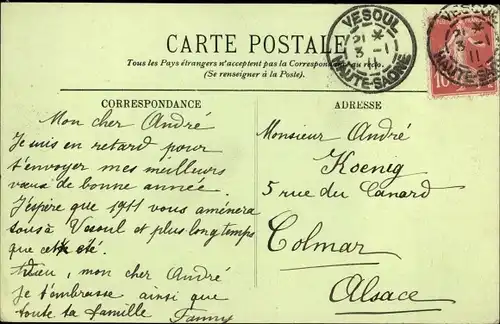 CARTE POSTALE
Tous les Pays étrangers n'acceptent pas la Correspondance au recto.
(Se renseigner à la Poste).
VESOUL
21 *
3 - 11
HAUTE-SAONE
VESOUL
21
3
11
HAUTE-SAONE
10
CORRESPONDANCE
Mon cher André
Je suis en retard pour
t'envoyer mes meilleurs
vœux de bonne année.
J'espère que 1911 vous amènera
tous à Vesoul et plus longtemps
que cet été.
Adieu, mon cher André
Je t'embrasse ainsi que
toute ta famille Fanny
ADRESSE
Monsieur André
Koenig
5 rue du Canard
Colmar
Alsace